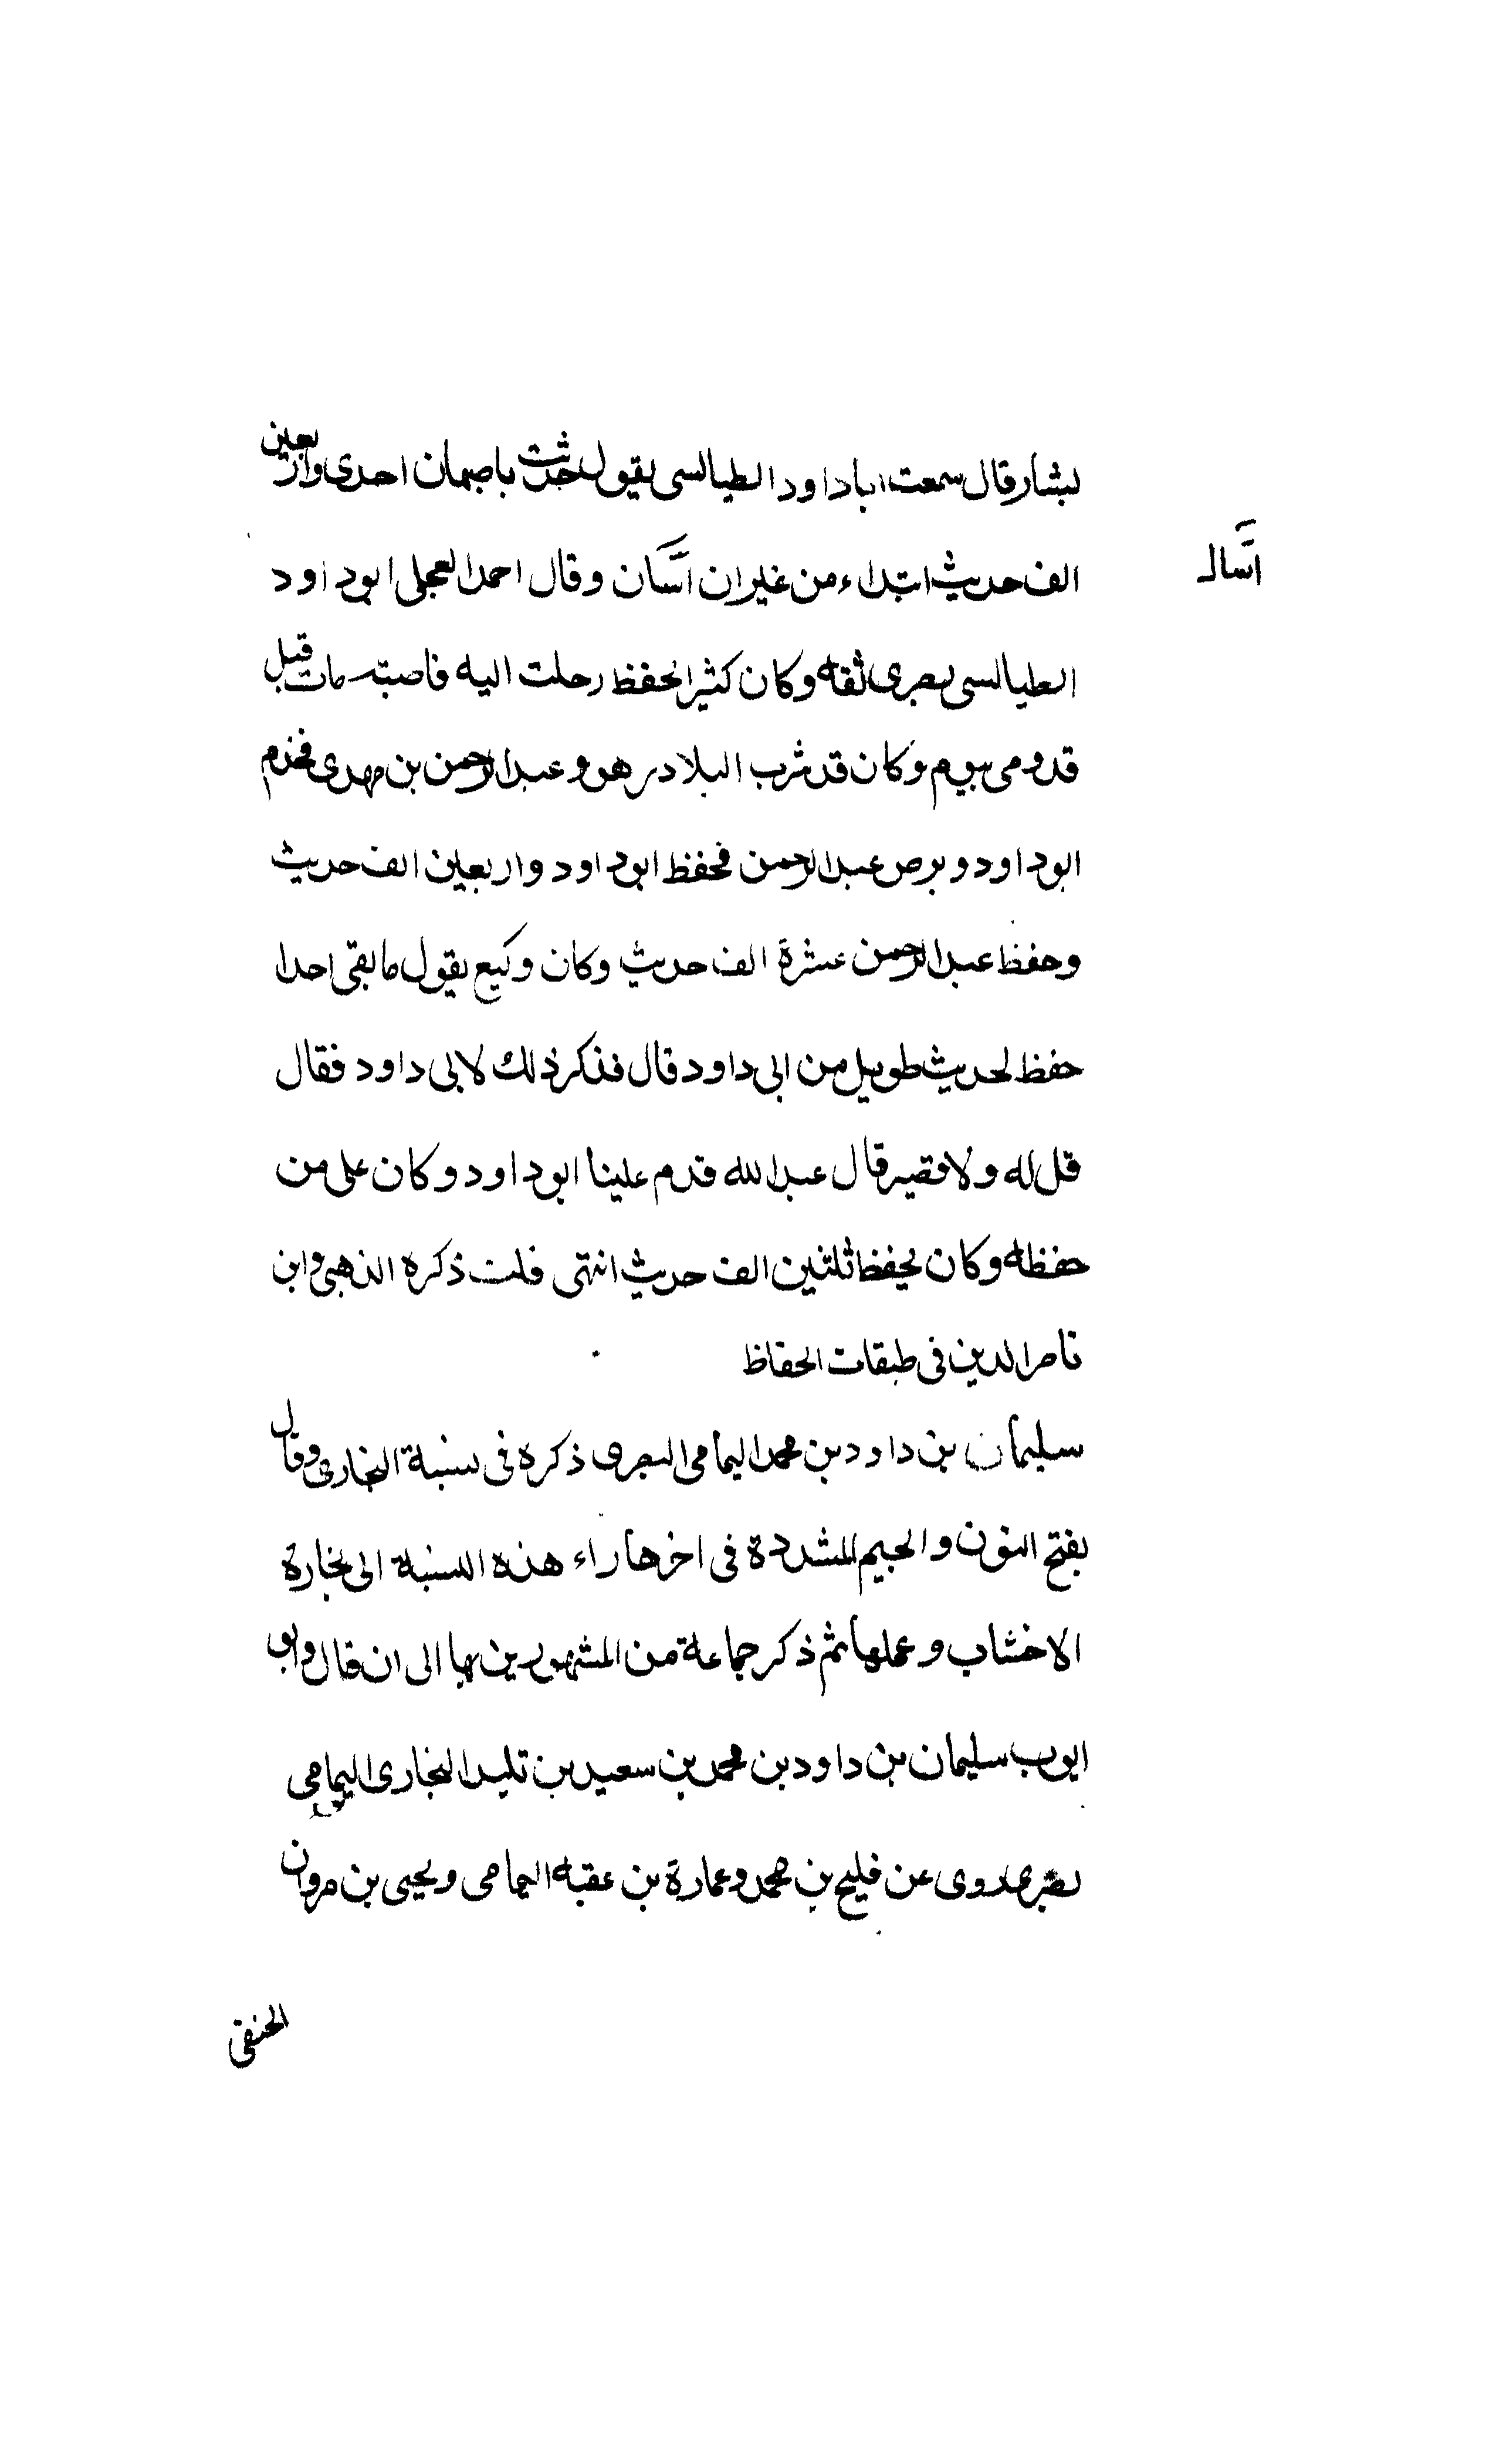 لبشار قال سمعت ابا داود الطيالسى يقول حدثت باصبهان احدى واربعين
الف حديث ابتداء من غير ان اسّال وقال احمد العجلى ابو داود
اسّال
الطيالسى بصرى ثقه وكان كثير الحفظ رحلت اليه فاصبته مات قبل
قدومى بيوم وكان قد شرب البلادر هو وعبد الرحمن بن مهدى فجذم
ابو داود وبرص عبد الرحمن فحفظ ابو داود واربعين الف حديث
وحفظ عبد الرحمن عشرة الف حديث وكان وكيع يقول ما بقى احدا
حفظ لحديث طويل من ابى داود قال فذكر ذلك لابى داود فقال
قل له ولا قصير قال عبد الله قدم علينا ابو داود وكان على من
حفظه وكان يحفظ ثلثين الف حديث انتهى قلت ذكره الذهبى وابن
ناصر الدين فى طبقات الحفاظ
سليمان بن داود بن محمد اليمامى البصرى ذكره فى نسبة النجارى وقال
بفتح النون والجيم المشددة فى اخرها راء هذه النسبة الى نجارة
الاخشاب وعملها ثم ذكر جماعة من المشهورين بها الى ان قال وابو
ايوب سليمان بن داود بن محمد بن سعيد بن تليد النجارى اليمامى
بصرى روى عن فليح بن محمد وعمارة بن عقبه اليمامى ويحيى بن مروان
الحنفى